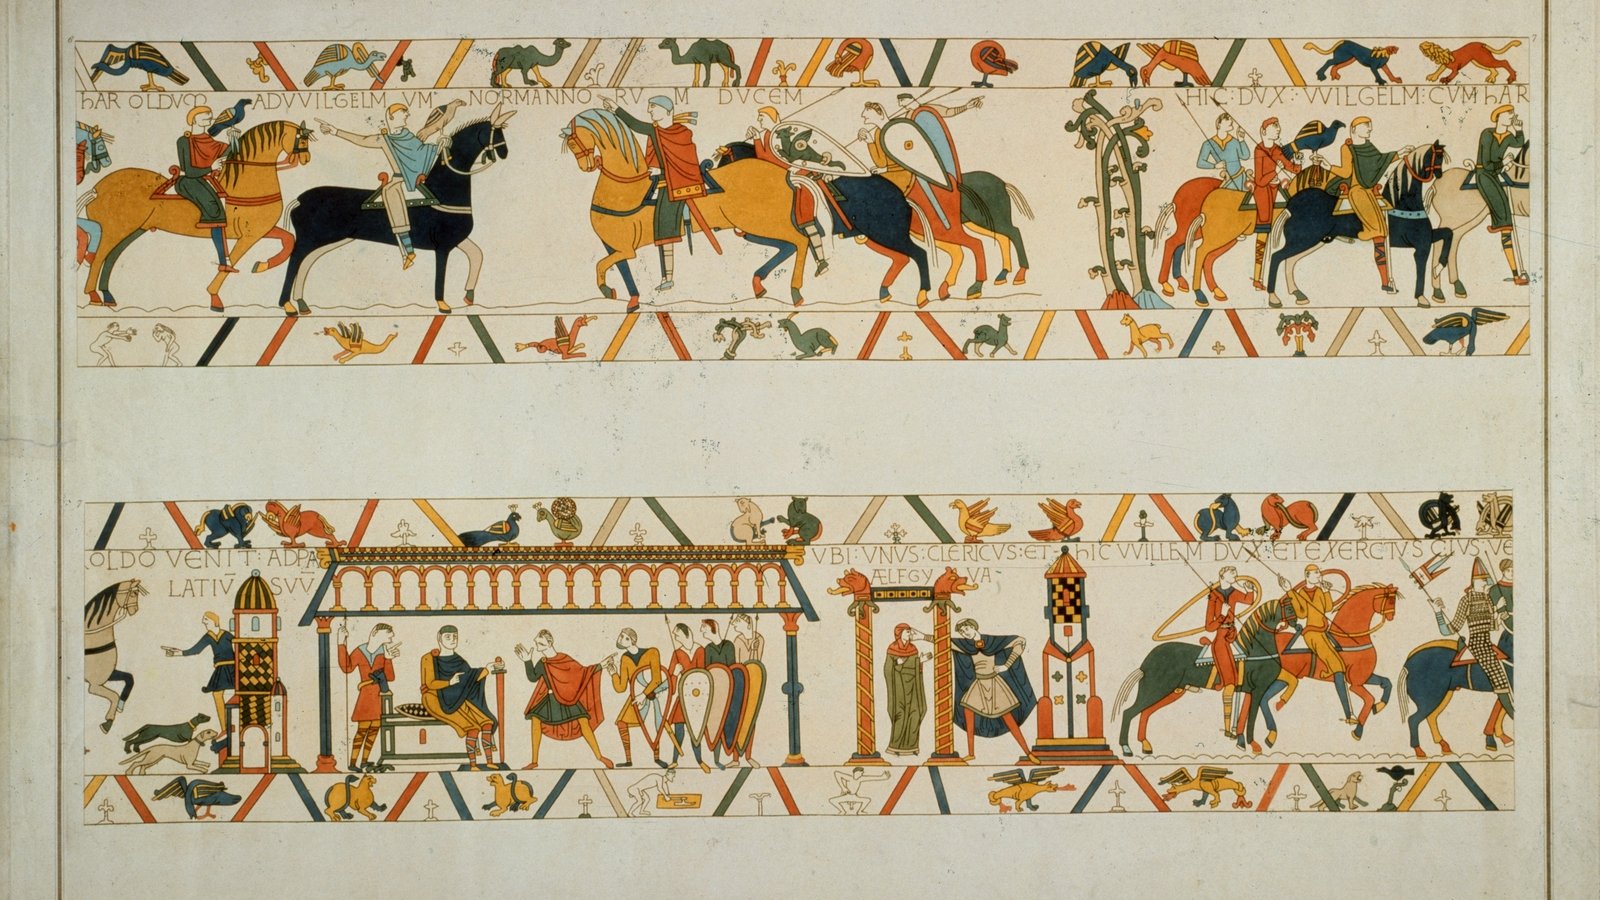 6
7
hAR OLDVM ADVVILGELM VM NORMANNO RV M DVCEM
HIC: DVX: VVILGELM: CVM hAR
OLDO VENIT: ADPA
LATIṼ SVṼ
VBI: VNVS: CLERICVS: ET:
ÆLFGY VA
hIC VVILLEM DVX: ET EXERCITVS EIVS: VE